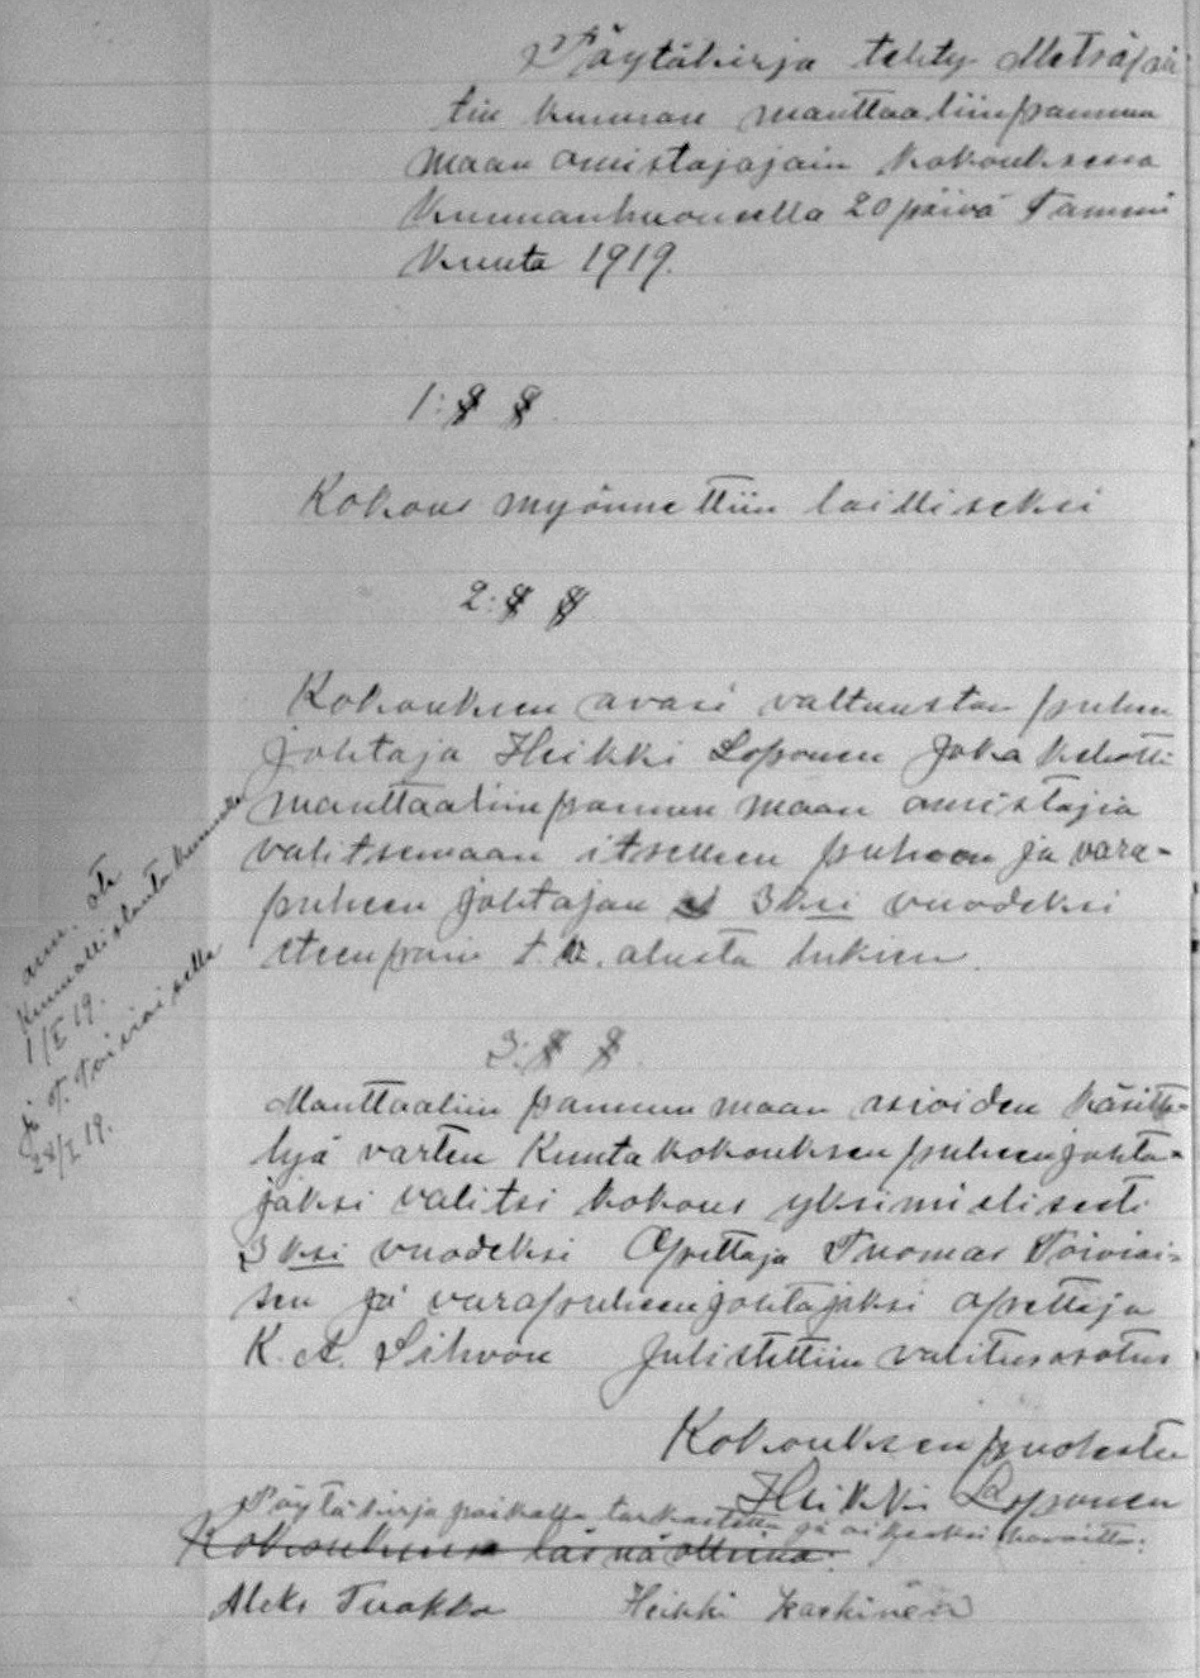 Pöytäkirja tehty Metsäpir
tin kunnan manttaaliinpannun
maan omistajajain kokouksessa
Kunnanhuoneella 20 päivä Tammi
kuuta 1919.
1:§ §.
Kokous myönnettiin lailliseksi
2:§ §
Kokouksen avasi valtuuston puheen
johtaja Heikki Loponen joka kehotti
manttaaliinpannun maan omistajia
valitsemaan itselleen puheen ja vara-
puheen johtajan 3ksi vuodeksi
eteenpäin t.v. alusta lukien.
ann. ote
Kunnallislautakunnalle
1/II 19.
ja T. Toiviaiselle
28/I 19.
3:§ §.
Manttaaliin pannun maan asioiden käsitte-
lyä varten Kuntakokouksen puheenjohta-
jaksi valitsi kokous yksimielisesti
3ksi vuodeksi Opettaja Tuomas Toiviai-
sen ja varapuheenjohtajaksi opettaja
K. A. Sihvon Julistettiin valitusosotus
Kokouksen puolesta
Heikki Loponen
Pöytäkirja paikalla tarkastettu ja oikeaksi havaittu:
Kokouksessa läsnä olleina:
Aleks Tuokko Heikki Kaskinen